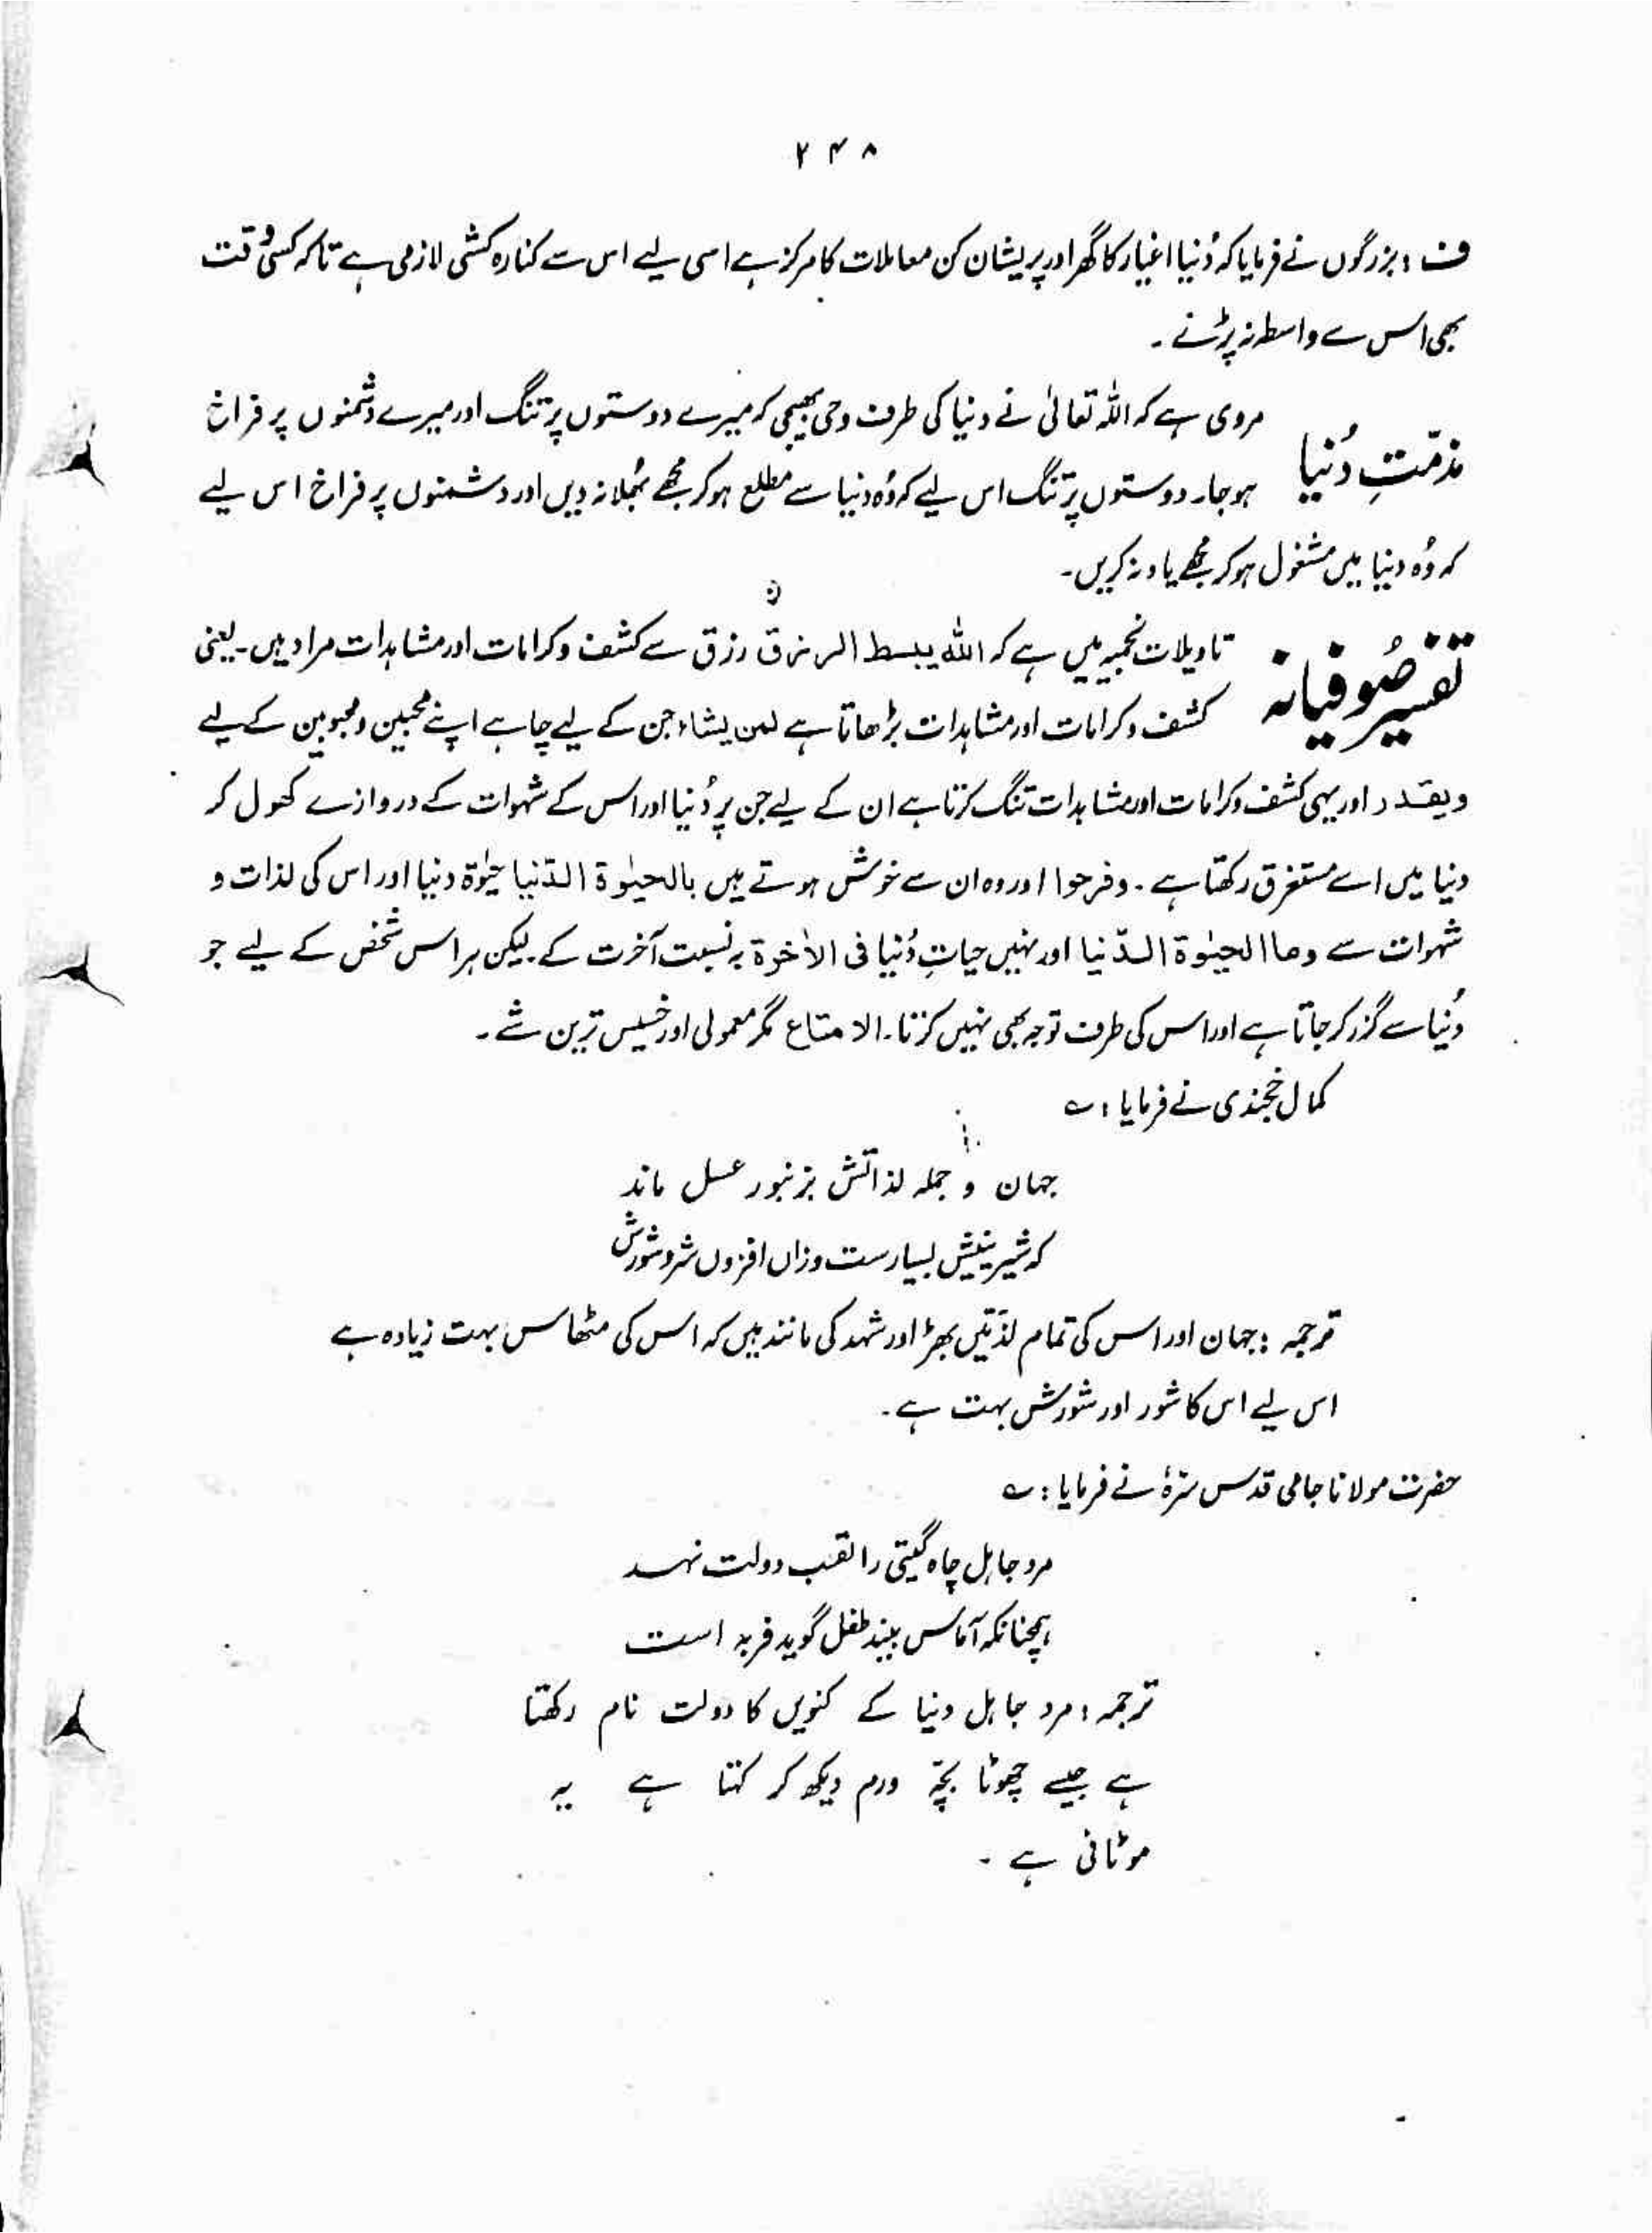 ۲۴۸
ف : بزرگوں نے فرمایا کہ دُنیا اغیار کا گھر اور پریشان کن معاملات کا مرکز ہے اسی لیے اس سے کنارہ کشی لازمی ہے تاکہ کسی وقت
بھی اس سے واسطہ نہ پڑنے ۔
مذمّتِ دُنیا
مروی ہے کہ اللہ تعالیٰ نے دنیا کی طرف وحی بھیجی کہ میرے دوستوں پر تنگ اور میرے دشمنوں پر فراخ
ہو جا۔ دوستوں پر تنگ اس لیے کہ وُہ دنیا سے مطلع ہو کر مجھے بھُلا نہ دیں اور دشمنوں پر فراخ اس لیے
کہ وُہ دنیا میں مشغول ہو کر مجھے یاد نہ کریں۔
تفسیر صُوفیانہ
تاویلات نجمیہ میں ہے کہ اللہ یبسط الرزق رزق سے کشف و کرامات اور مشاہدات مراد ہیں۔ یعنی
کشف و کرامات اور مشاہدات بڑھاتا ہے لمن یشاء جن کے لیے چاہے اپنے محبین و محبوبین کے لیے
ویقدر اور یہی کشف و کرامات اور مشاہدات تنگ کرتا ہے ان کے لیے جن پر دُنیا اور اس کے شہوات کے دروازے کھول کر
دنیا میں اسے مستغرق رکھتا ہے ۔ وفرحوا اور وہ ان سے خوش ہوتے ہیں بالحیٰوۃ الدّنیا حیٰوۃ دنیا اور اس کی لذات و
شہوات سے وما الحیٰوۃ الدّنیا اور نہیں حیاتِ دُنیا فی الاٰخرۃ بہ نسبت آخرت کے۔ لیکن ہر اس شخص کے لیے جو
دُنیا سے گزر کر جاتا ہے اور اس کی طرف توجہ بھی نہیں کرتا۔ الا متاع مگر معمولی اور خسیس ترین شے ۔
کمال خجندی نے فرمایا : ؎
جہان و جملہ لذاتش بزنبور عسل ماند
کہ شیرینیش بسیارست وزاں افزوں شر و شورش
ترجمہ : جہان اور اس کی تمام لذّتیں بھڑ اور شہد کی مانند ہیں کہ اس کی مٹھاس بہت زیادہ ہے
اس لیے اس کا شور اور شورش بہت ہے ۔
حضرت مولانا جامی قدس سرّہٗ نے فرمایا : ؎
مرد جاہل چاہ گیتی را لقب دولت نہد
ہمچنانکہ آماس بیند طفل گوید فربہ است
ترجمہ : مرد جاہل دنیا کے کنویں کا دولت نام رکھتا
ہے جیسے چھوٹا بچّہ ورم دیکھ کر کہتا ہے یہ
موٹائی ہے ۔